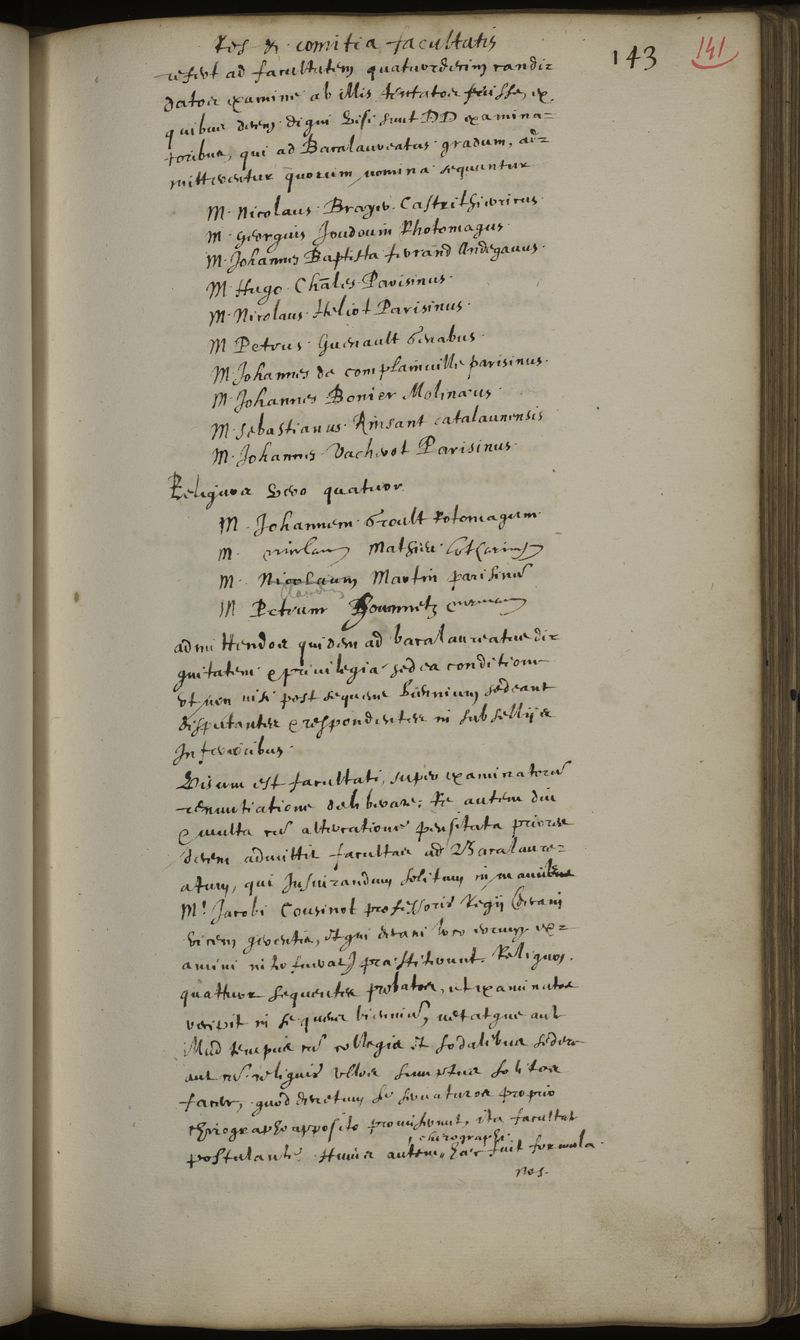 Res & comitia facultatis
143
141
refert ad facultatem quatuordecim candi=
datos examine ab illis tentatos fuisse, ex
quibus decem digni visi sunt DD examina=
toribus, qui ad Baccalaureatus gradum, ad=
mitterentur quorum nomina sequuntur
M. Nicolaus Brayer Castrithierricus
M. Georgius Joudouin Rhotomagus
M. Johannes Baptista ferrand Andegavus.
M. Hugo Chasles Parisinus.
M. Nicolaus Heliot Parisinus.
M Petrus Guenault Genabus.
M. Johannes de complainuille parisinus.
M. Johannes Bonier Molinæus.
M. Sebastianus Rinssant catalaunensis
M. Johannes Vacherot Parisinus.
Reliquos vero quatuor
M. Johannem Groult Rotomagum
M. Mathieu
M. Nicolaum Martin parisinū
Claudium
M Petrum
admittendos quidem ad bacalaureatus di=
gnitatem & priuilegia sed ea conditione
vt non nisi post sequens biennium sedeant
disputantes & respondentes in subsellijs
Inferioribus.
Visum est facultati, super examinatorū
renuntiatione deliberare; Re autem diu
& multa cū altercatione pensitata priores
decem admittit facultas ad Baccalaure=
atum, qui Jusiurandum solitum in manibus
Mri. Jacobi Cousinot professoris Regij decani
vicem gerentis, et qui decani loco eorum ex=
amini præstiterunt. Reliquos
quattuor sequentes probatos, et examinatos
recipit in sequens bienniū, vetatque aut
illud tempus cū collegis et sodalibus sedere
aut cū reliquis vllos sumptus solitos
facere, quod decretum se seruaturos proprio
chirographo apposito promiserunt, ita facultas
chirographi
postulante. Huius autem hæc fuit formula.
nos.